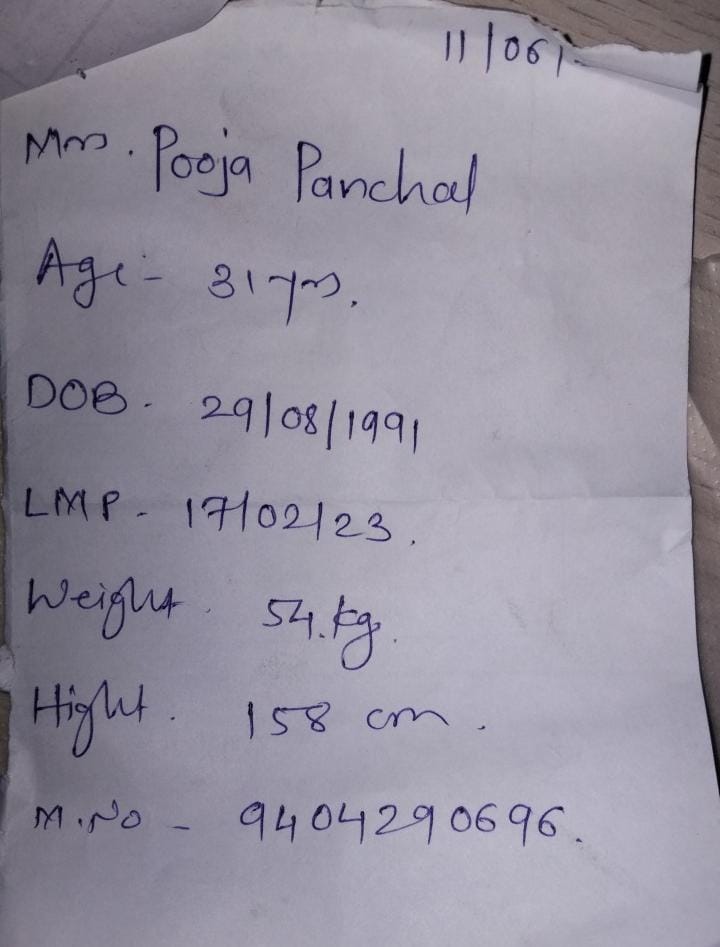 11/06/
Mrs. Pooja Panchal
Age:- 31 yrs.
DOB - 29/08/1991
LMP - 17/02/23.
Weight. 54.kg.
Hight. 158 cm.
M.No - 9404290696.